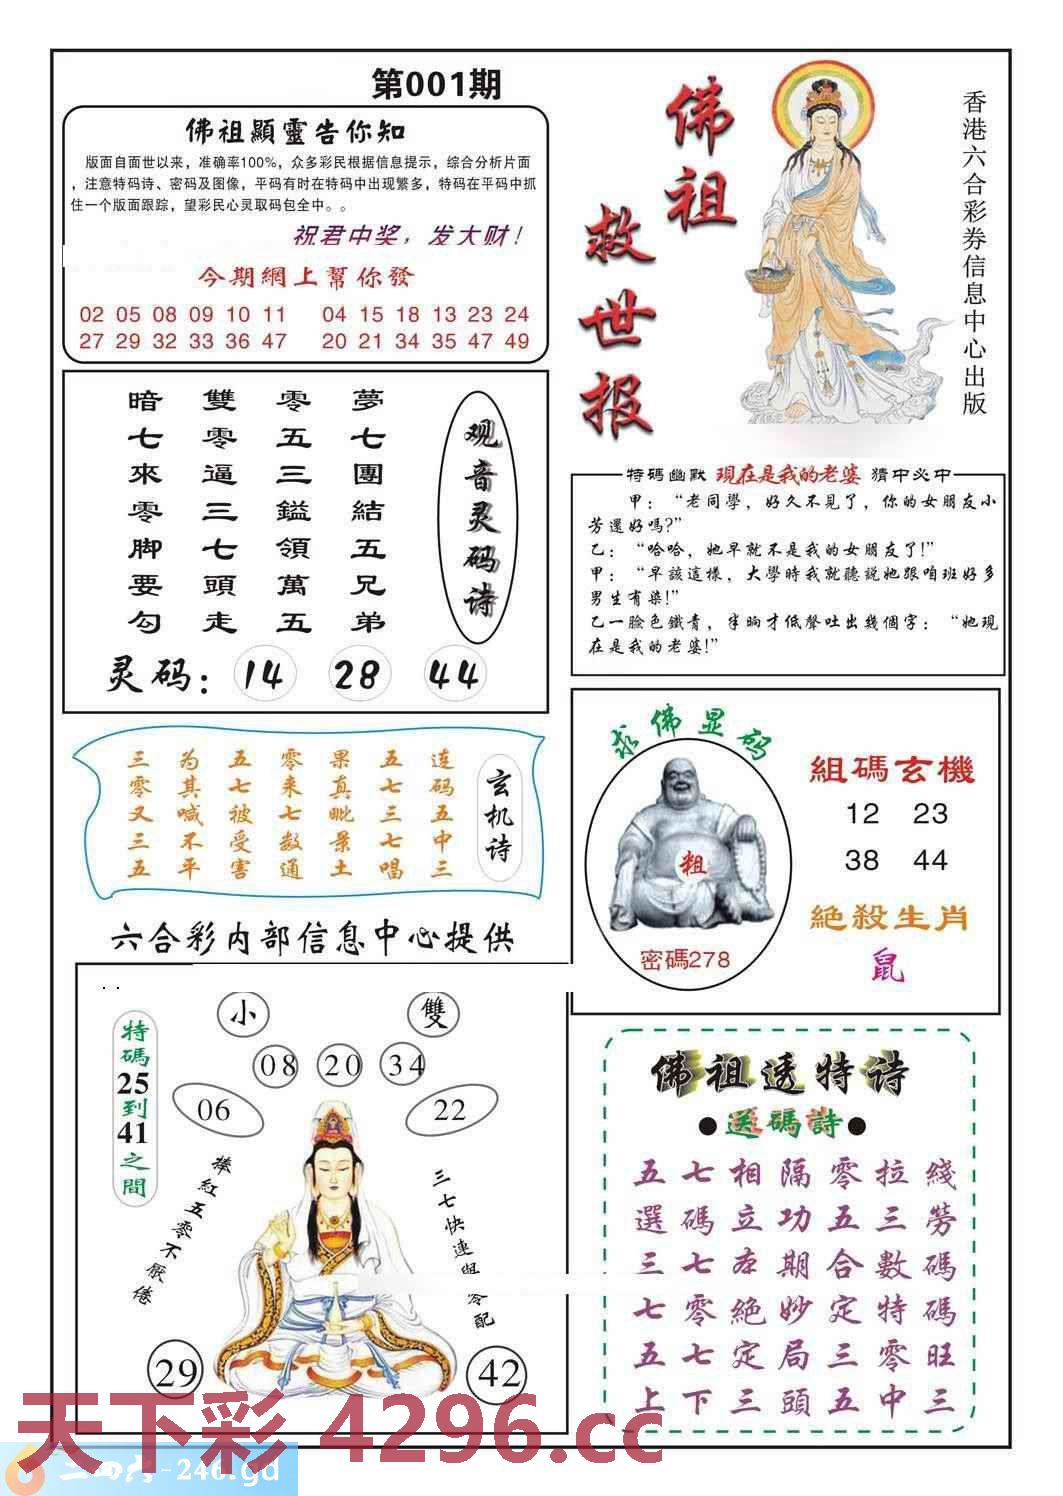 第001期
佛祖顯靈告你知
版面自面世以来，准确率100%，众多彩民根据信息提示，综合分析片面
，注意特码诗、密码及图像，平码有时在特码中出现繁多，特码在平码中抓
住一个版面跟踪，望彩民心灵取码包全中。。
祝君中奖，发大财！
今期網上幫你發
02 05 08 09 10 11 04 15 18 13 23 24
27 29 32 33 36 47 20 21 34 35 47 49
佛祖
救世报
香港六合彩券信息中心出版
观音灵码诗
夢七團結五兄弟
零五三鎰領萬五
雙零逼三七頭走
暗七來零脚要勾
灵码：14 28 44
特碼幽默 現在是我的老婆 猜中必中
甲：“老同學，好久不見了，你的女朋友小
芳還好嗎?”
乙：“哈哈，她早就不是我的女朋友了!”
甲：“早該這樣，大學時我就聽説她跟咱班好多
男生有染!”
乙一臉色鐵青，半晌才低聲吐出幾個字：“她現
在是我的老婆!”
玄机诗
连码五中三
五七三七唱
果真毗景土
零来七数通
五七被受害
为其喊不平
三零又三五
求佛显码
粗
密碼278
組碼玄機
12 23
38 44
絶殺生肖
鼠
六合彩内部信息中心提供
特碼25到41之間
小 雙
08 20 34
06 22
捧紅五零不厭倦
三七快連與零配
29 42
佛祖透特诗
●送碼詩●
五七相隔零拉綫
選碼立功五三勞
三七本期合數碼
七零絶妙定特碼
五七定局三零旺
上下三頭五中三
天下彩 4296.cc
二四六-246.gd